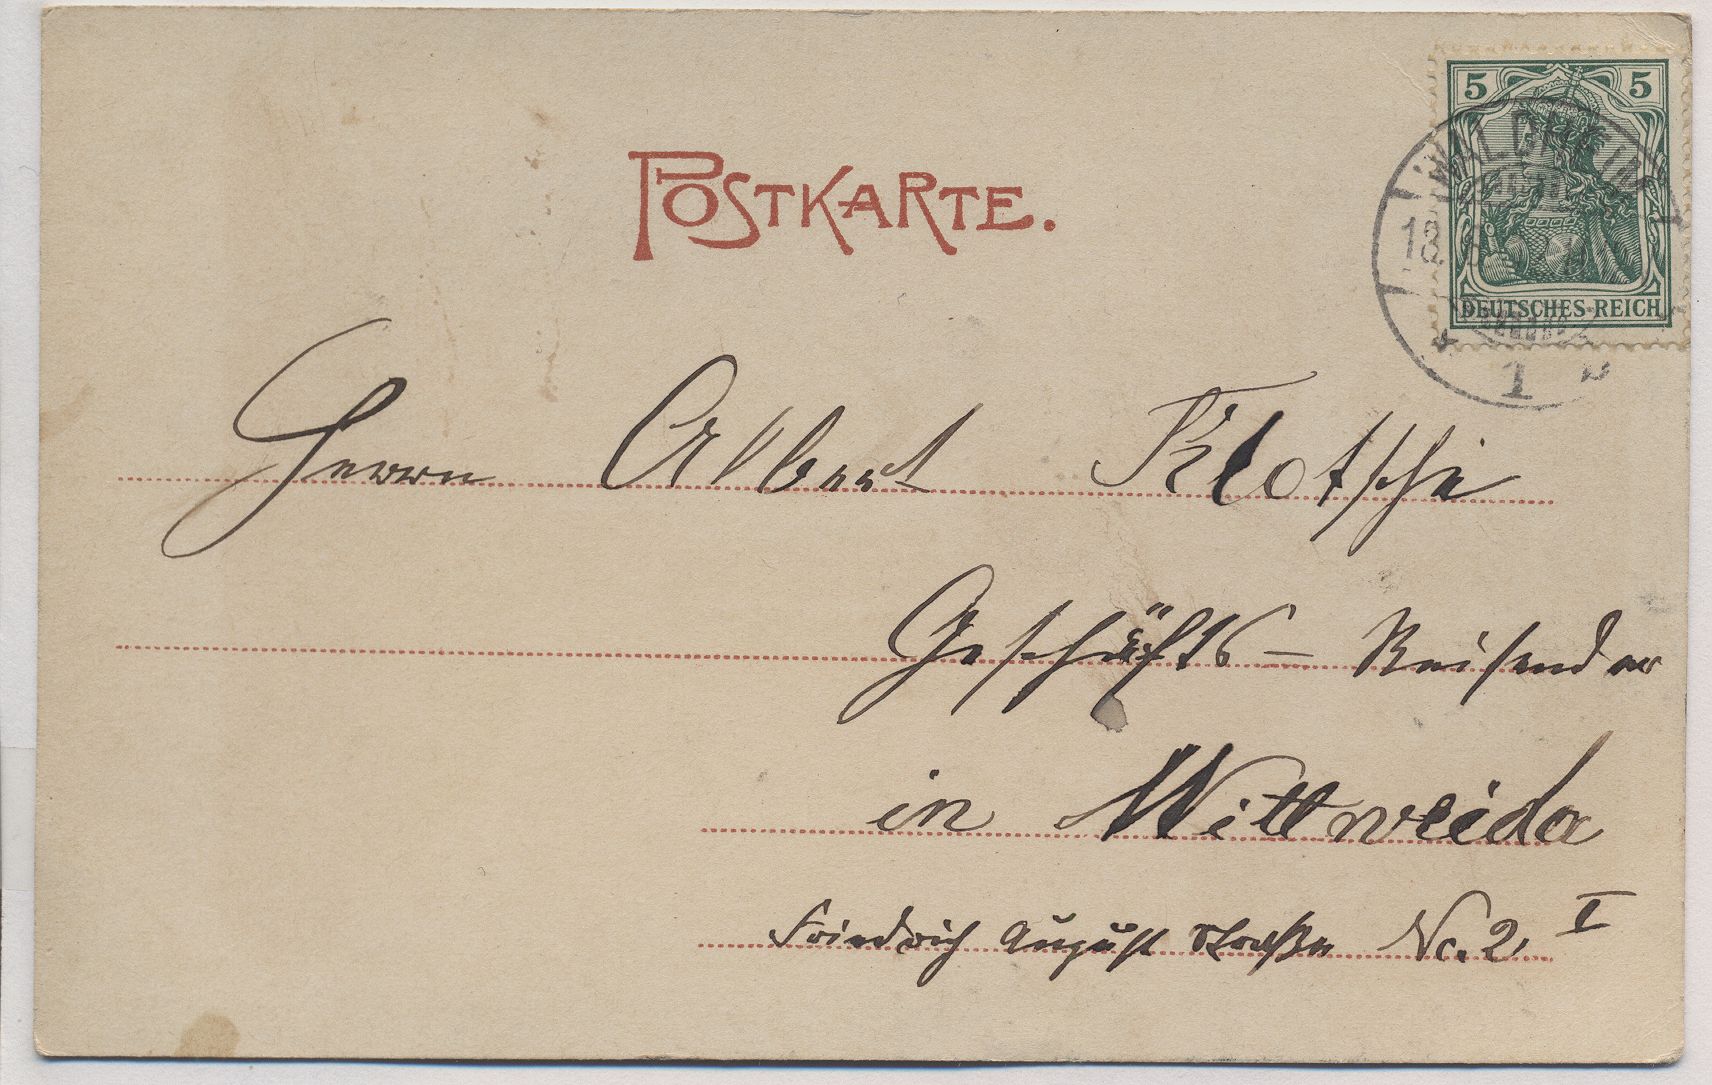 5 5
WALDHEIM
DEUTSCHES REICH
1
POSTKARTE.
Herrn Albert Klotsche
Geschäfts – Reisender
in Mittweida
Friedrich August Straße No. 2, I